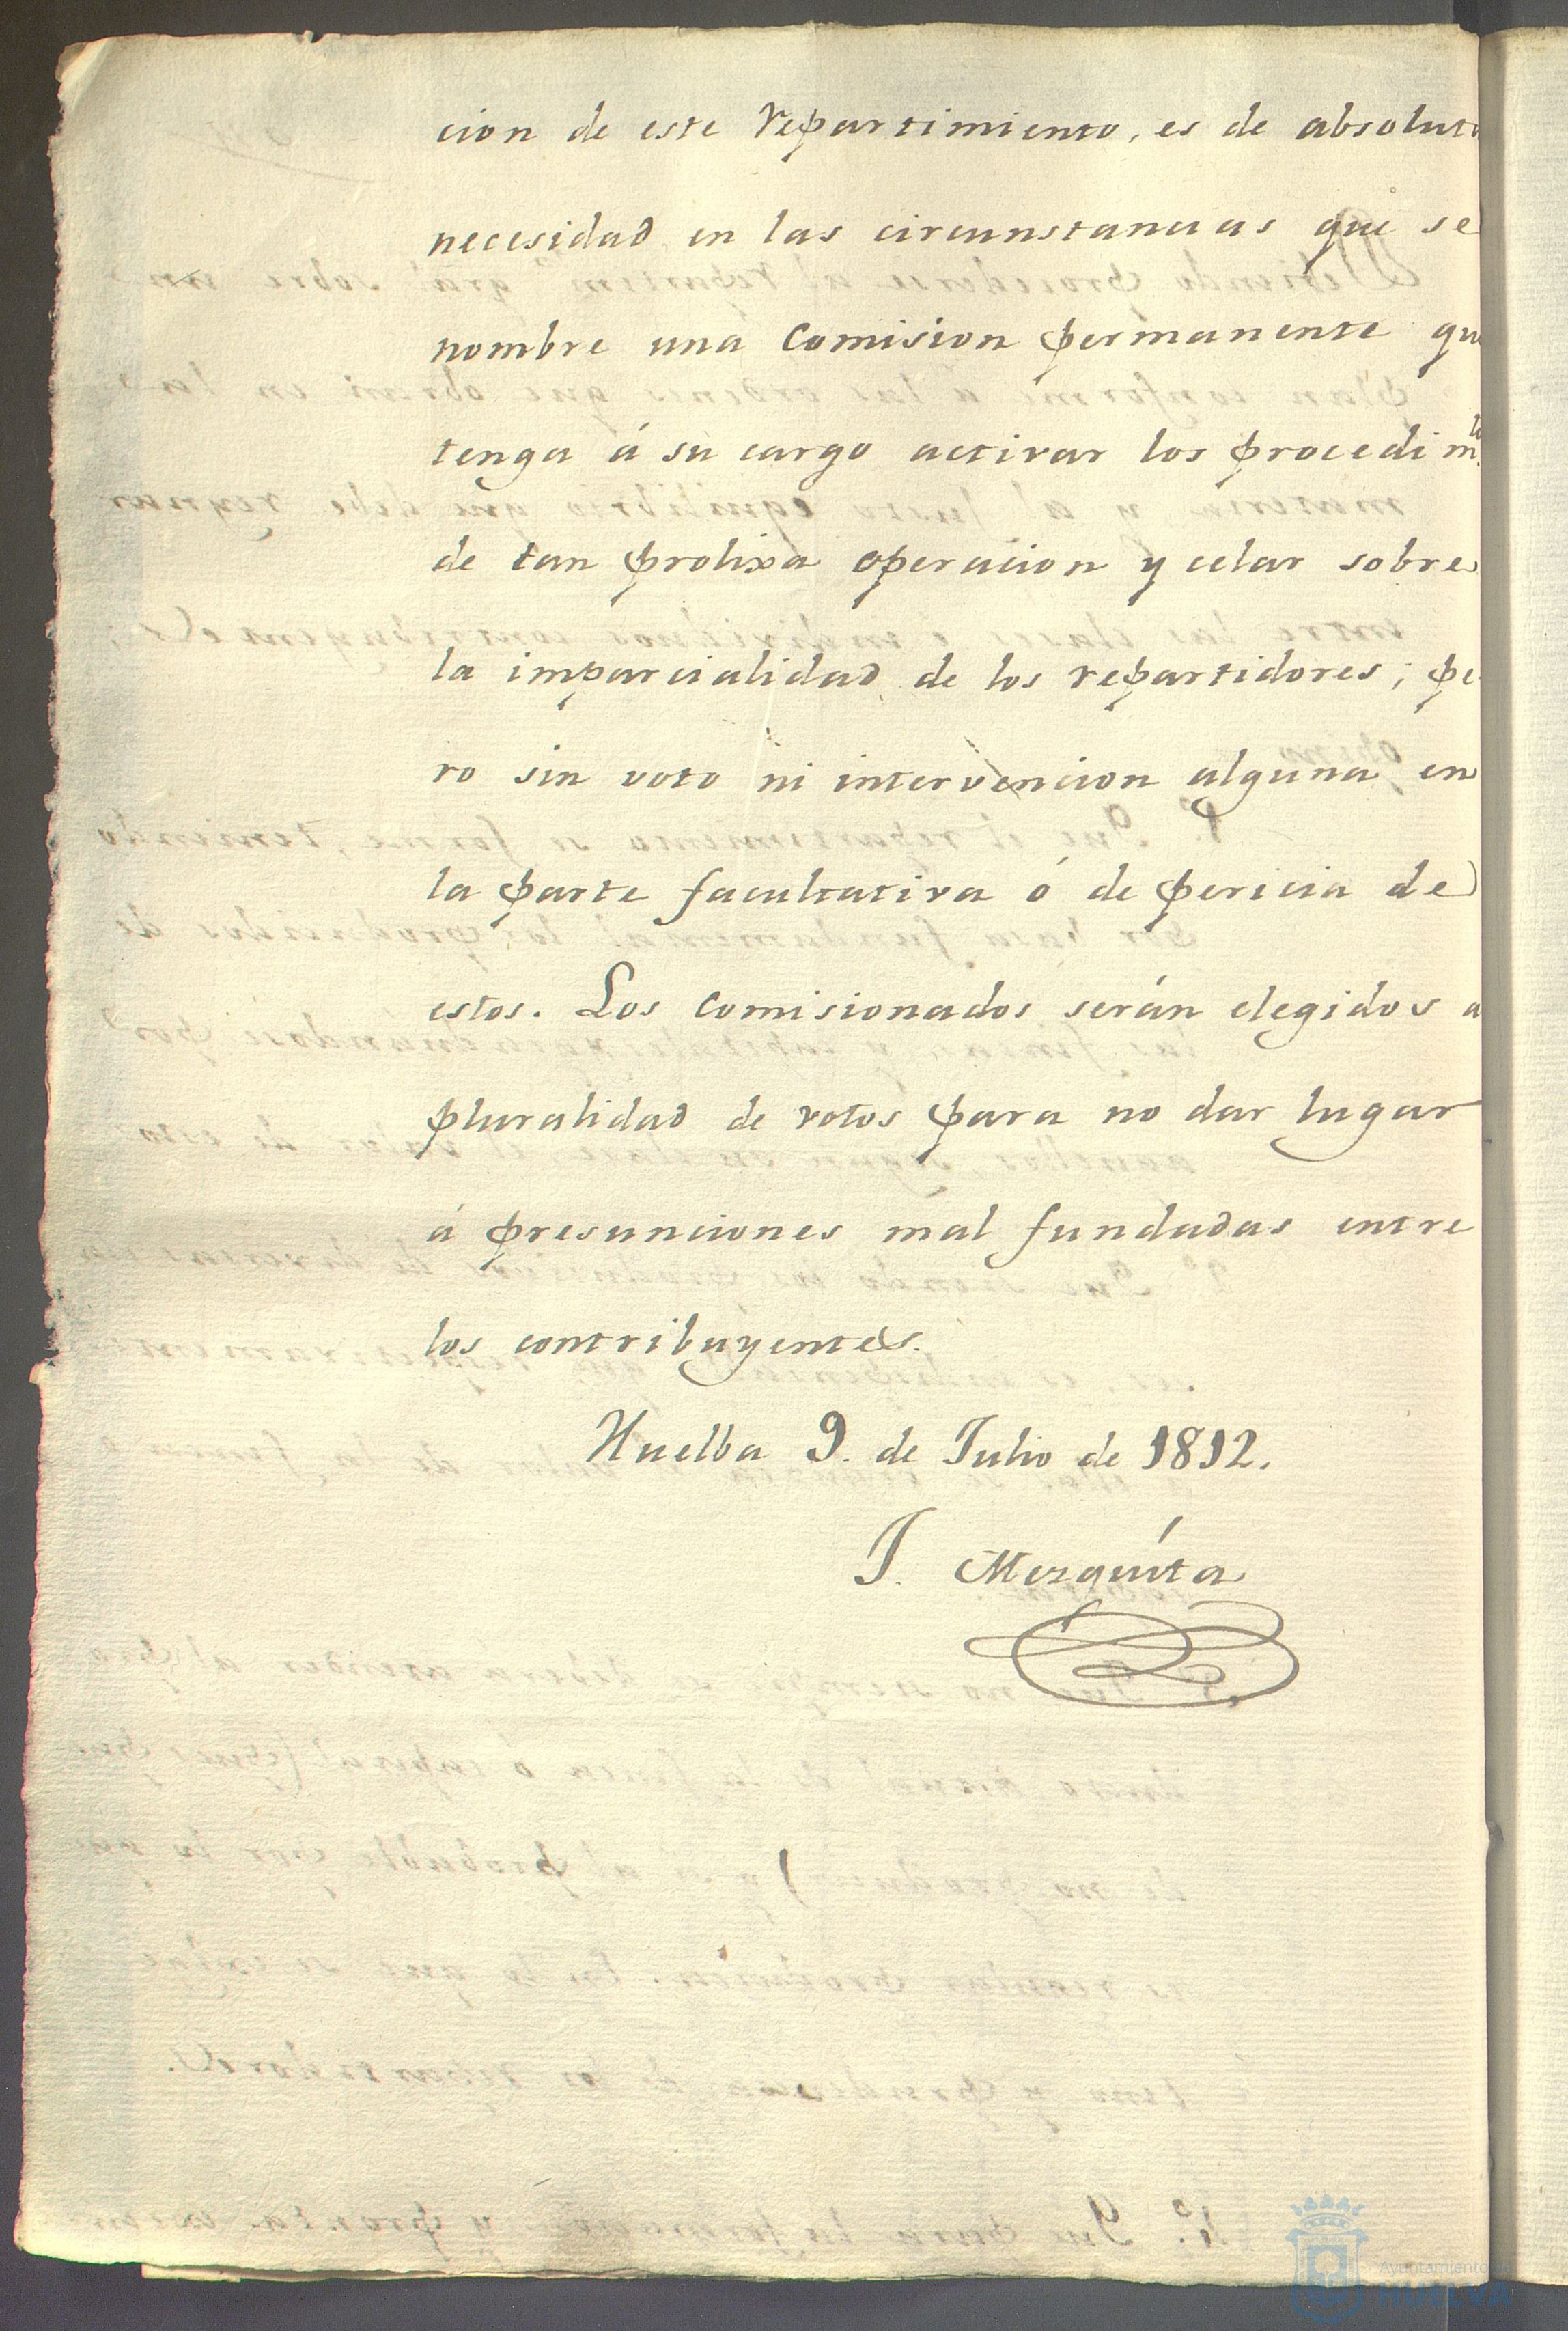 cion de este repartimiento, es de absoluta
necesidad en las circunstancias que se
nombre una Comision permanente qu
tenga á su cargo activar los procedim.to
de tan prolixa operacion y celar sobre
la imparcialidad de los repartidores; pe-
ro sin voto ni intervencion alguna en
la parte facultativa ó de pericia de
estos. Los Comisionados serán elegidos a
pluralidad de votos para no dar lugar
á presunciones mal fundadas entre
los contribuyentes.
Huelba 9. de Julio de 1812.
J. Mezquita
Ayuntamiento
HUELVA